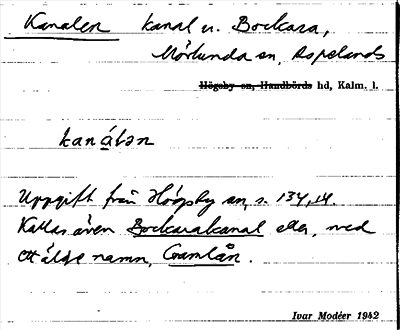 Kanalen kanal v. Bockara,
Mörlunda sn, Aspelands
Högsby sn, Handbörds hd, Kalm. l.
kanálən
Uppgift från Högsby sn, s. 134, 14.
Kallas även Bockarakanal eller, med
ett äldre namn, Gamlån.
Ivar Modéer 1942